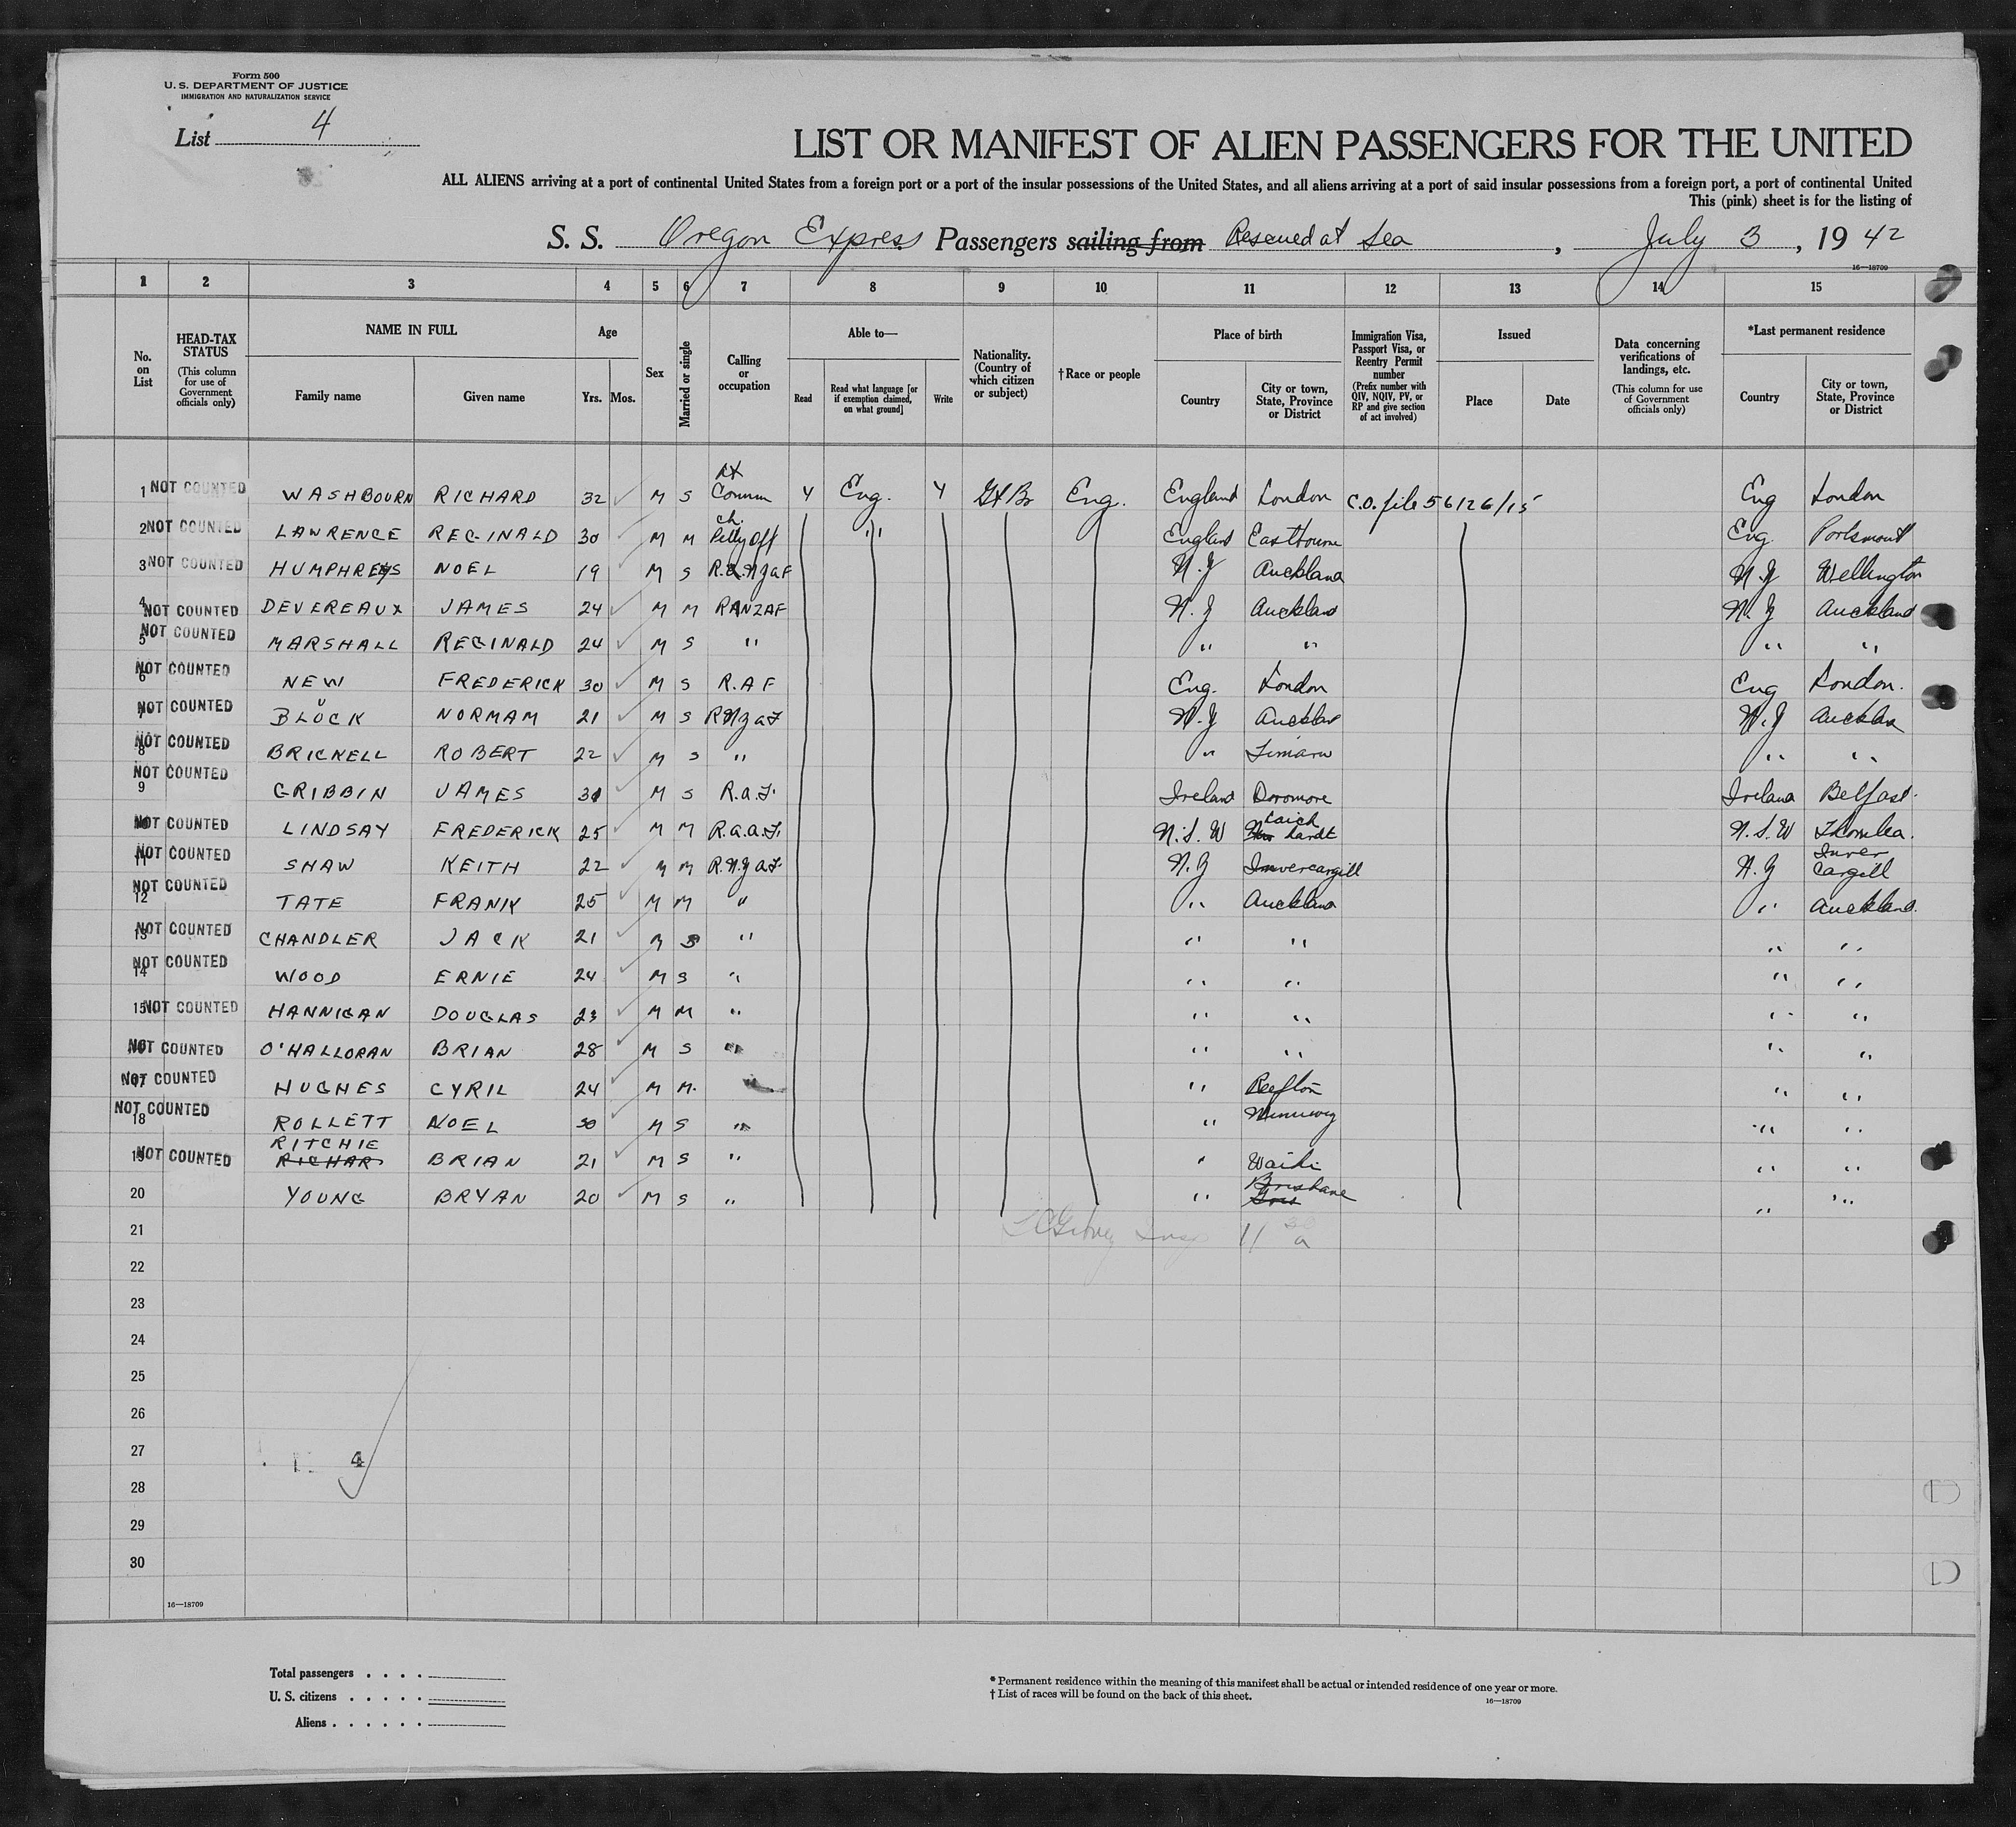 Form 500
U. S. DEPARTMENT OF JUSTICE
IMMIGRATION AND NATURALIZATION SERVICE
List 4
LIST OR MANIFEST OF ALIEN PASSENGERS FOR THE UNITED
ALL ALIENS arriving at a port of continental United States from a foreign port or a port of the insular possessions of the United States, and all aliens arriving at a port of said insular possessions from a foreign port, a port of continental United
This (pink) sheet is for the listing of
S. S. Oregon Express Passengers sailing from Rescued at Sea, July 3, 19 42
16—18709
1 2 3 4 5 6 7 8 9 10 11 12 13 14 15
No. on List
HEAD-TAX STATUS (This column for use of Government officials only)
NAME IN FULL Family name Given name
Age Yrs. Mos.
Sex
Married or single
Calling or occupation
Able to— Read Read what language [or if exemption claimed, on what ground] Write
Nationality. (Country of which citizen or subject)
†Race or people
Place of birth Country City or town, State, Province or District
Immigration Visa, Passport Visa, or Reentry Permit number (Prefix number with QIV, NQIV, PV, or RP and give section of act involved)
Issued Place Date
Data concerning verifications of landings, etc. (This column for use of Government officials only)
*Last permanent residence Country City or town, State, Province or District
1 NOT COUNTED WASHBOURN RICHARD 32 M S Comm Y Eng. Y Gt Br Eng. England London C.O. file 56126/15 Eng London
2 NOT COUNTED LAWRENCE REGINALD 30 M M ch. Petty Off " England Eastbourne Eng. Portsmout
3 NOT COUNTED HUMPHREYS NOEL 19 M S N.Z Auckland N.Z Wellington
4 NOT COUNTED DEVEREAUX JAMES 24 M M RANZAF N.Z Auckland N.Z Auckland
5 NOT COUNTED MARSHALL REGINALD 24 M S " " " " "
6 NOT COUNTED NEW FREDERICK 30 M S R.A F Eng. London Eng London.
7 NOT COUNTED BLUCK NORMAM 21 M S RNZaF N.Z Aucklan N.Z Aucklan
8 NOT COUNTED BRICKELL ROBERT 22 M S " " Timaru " "
9 NOT COUNTED GRIBBIN JAMES 31 M S R.a.F. Ireland Doromore Ireland Belfast.
10 NOT COUNTED LINDSAY FREDERICK 25 M M R.a.a.F. N.S.W Laich hardt N.S.W
11 NOT COUNTED SHAW KEITH 22 M M R.N.Z.a.F N.Z Invercargill N.Z Inver Cargill
12 NOT COUNTED TATE FRANK 25 M M " " Auckland " Auckland.
13 NOT COUNTED CHANDLER JACK 21 M S " " " " "
14 NOT COUNTED WOOD ERNIE 24 M S " " " " "
15 NOT COUNTED HANNIGAN DOUGLAS 23 M M " " " " "
16 NOT COUNTED O'HALLORAN BRIAN 28 M S " " " " "
17 NOT COUNTED HUGHES CYRIL 24 M M. " Reefton " "
18 NOT COUNTED ROLLETT NOEL 30 M S " " " "
19 NOT COUNTED RITCHIE RICHAR BRIAN 21 M S " " Waihi " "
20 YOUNG BRYAN 20 M S " " Brisbane " "
21 11 30 a
22
23
24
25
26
27 4
28
29
30
16—18709
Total passengers . . . .
U. S. citizens . . . . .
Aliens . . . . . .
* Permanent residence within the meaning of this manifest shall be actual or intended residence of one year or more.
† List of races will be found on the back of this sheet.
16—18709